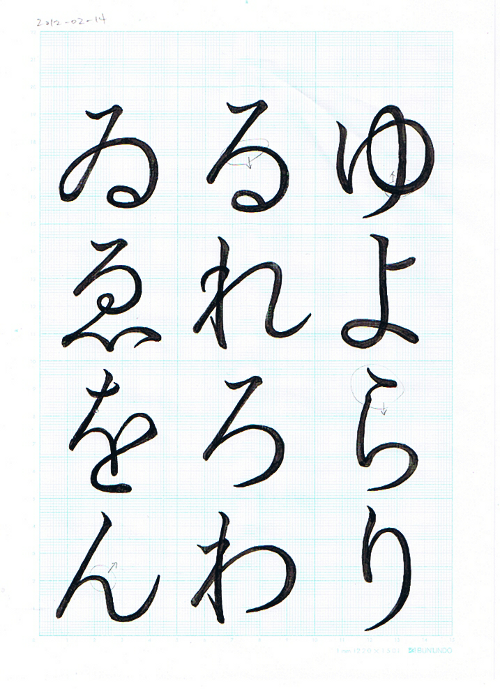 2012-02-14
ゆよらり
るれろわ
ゐゑをん